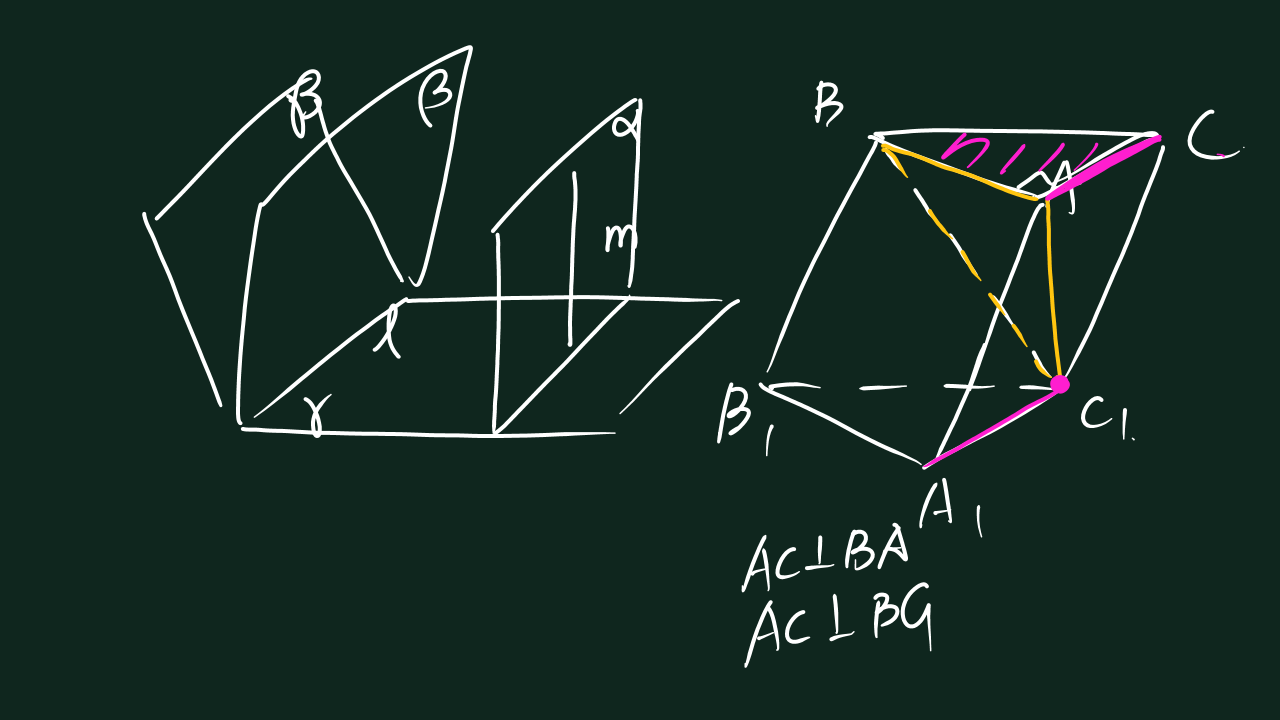 β
β
α
m
l
γ
B
C
A
B₁
C₁
A₁
AC⊥BA
AC⊥BC₁